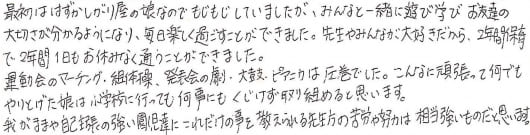 最初ははずかしがり屋の娘なのでもじもじしていましたが、みんなと一緒に遊び学び お友達の
大切さが分かるようになり、毎日楽しく過ごすことができました。先生やみんなが大好きだから、2年間保育
で2年間1日もお休みなく通うことができました。
運動会のマーチング・組体操、発表会の劇・大鼓・ピアニカは圧巻でした。こんなに頑張って何でも
やりとげた娘は小学校に行っても何事にもくじけず取り組めると思います。
我がままや自己主張の強い園児達にこれだけの事を教えられる先生方の苦労や努力は相当強いものだと思います